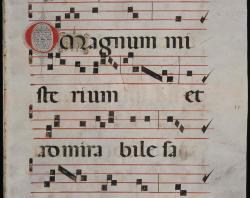 O magnum mi
ste rium et
admira bile sa